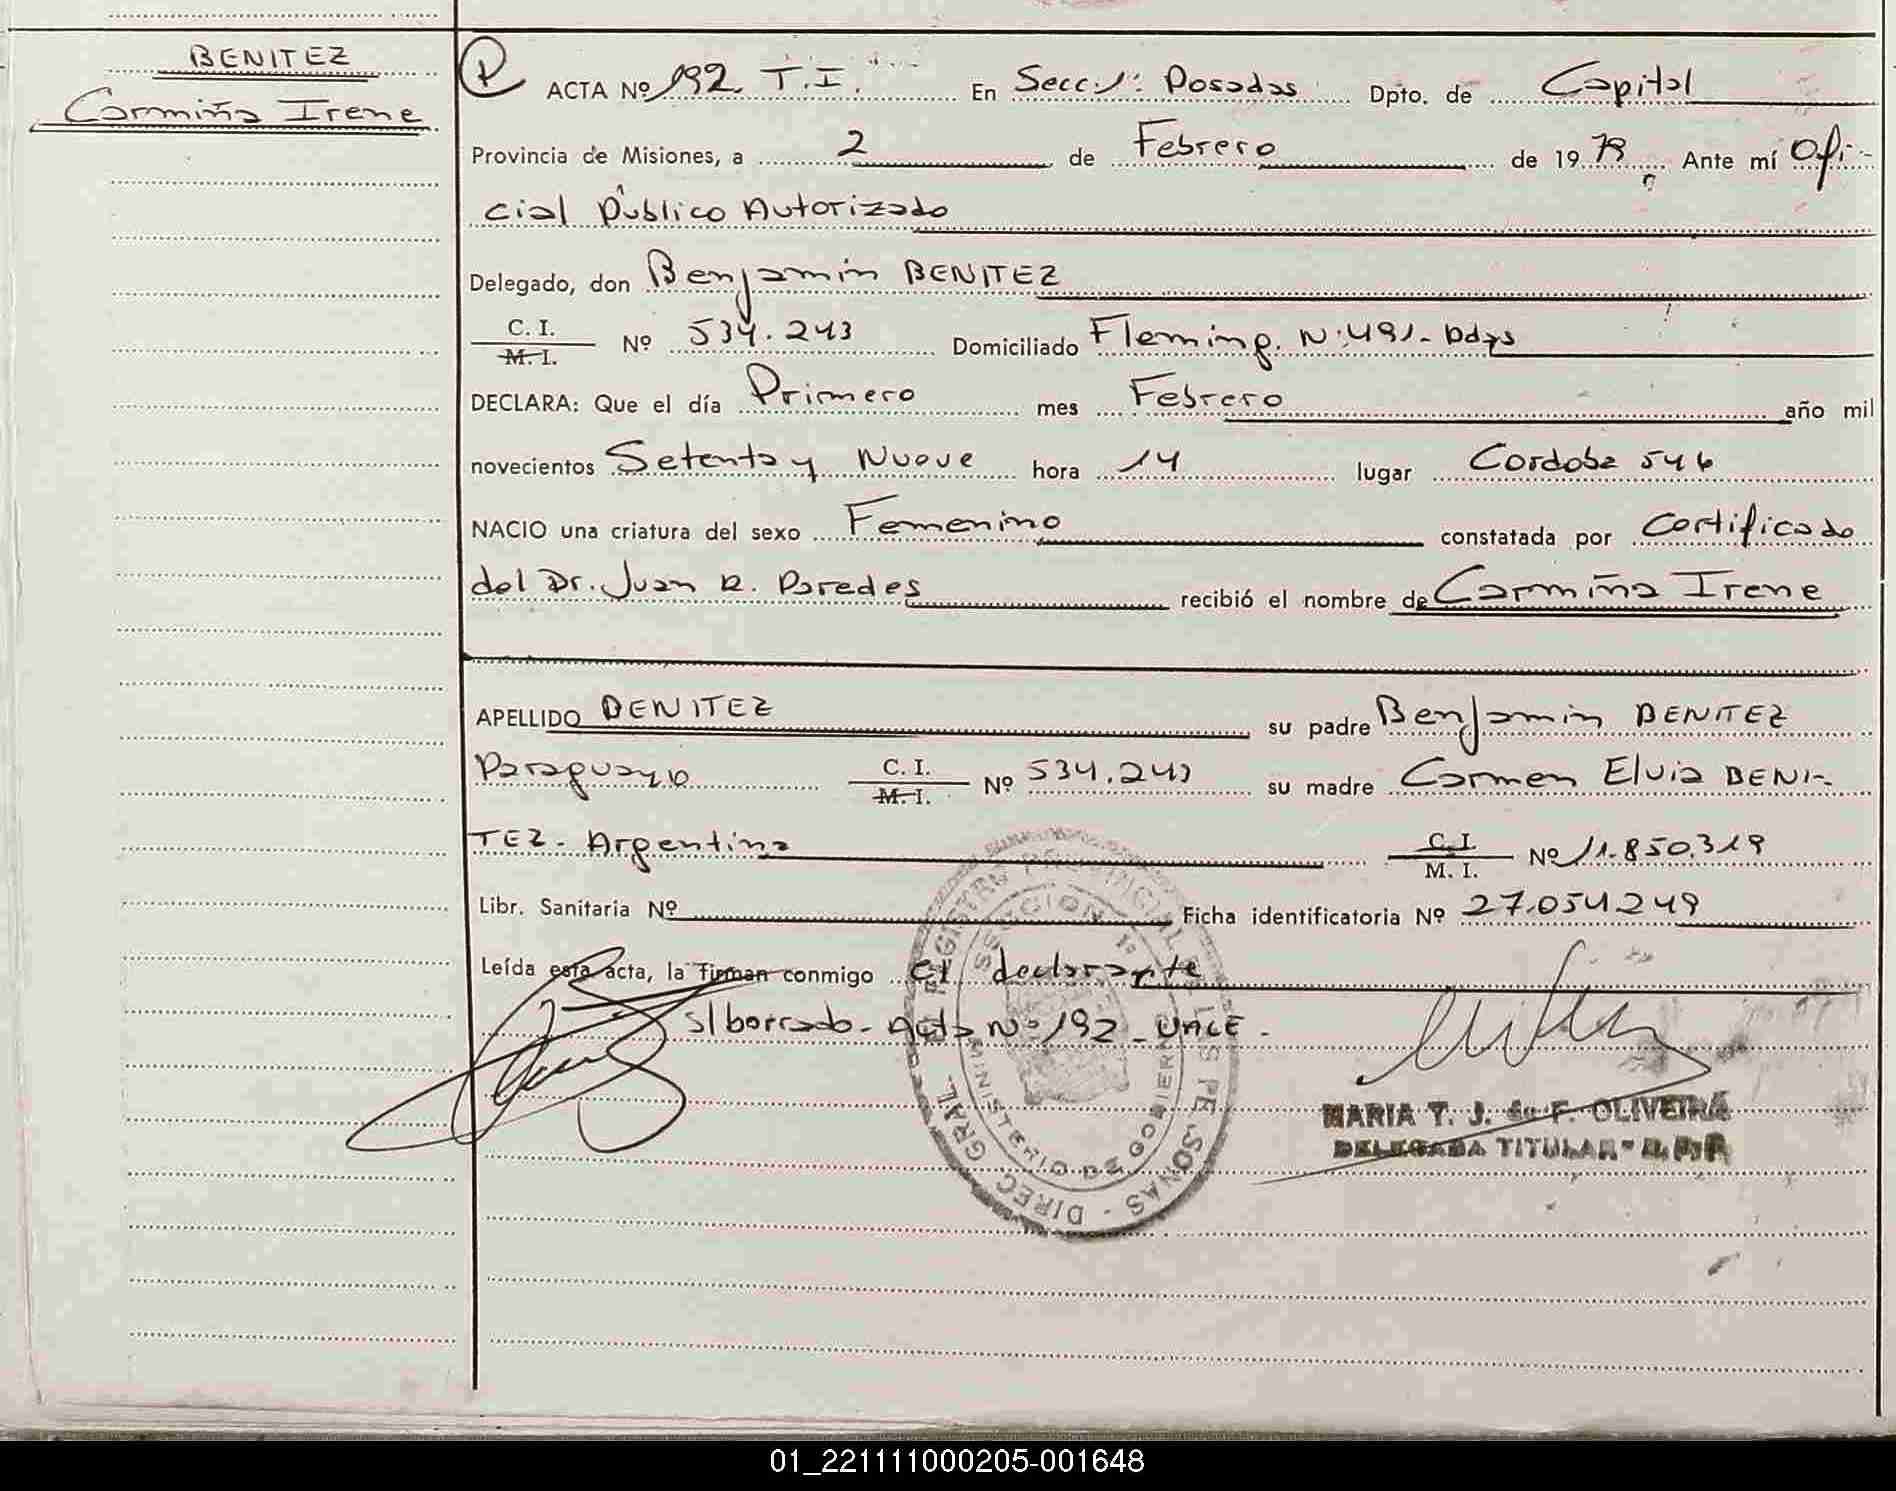 BENITEZ
Carmiña Irene
ACTA Nº 192. T.I. En Secc. 1ª: Posadas Dpto. de Capital
Provincia de Misiones, a 2 de Febrero de 1979 Ante mí Ofi-
cial Público Autorizado
Delegado, don Benjamin BENITEZ
C. I.
M. I.
Nº 534.243 Domiciliado Fleming. Nº 491- Pdas
DECLARA: Que el día Primero mes Febrero año mil
novecientos Setenta y Nueve hora 14 lugar Cordoba 546
NACIO una criatura del sexo Femenino constatada por Certificado
del Dr. Juan R. Paredes recibió el nombre de Carmiña Irene
APELLIDO BENITEZ su padre Benjamin BENITEZ
Paraguayo C. I.
M. I.
Nº 534.243 su madre Carmen Elvia BENI-
TEZ- Argentina C. I.
M. I.
Nº 11.850.319
Libr. Sanitaria Nº Ficha identificatoria Nº 27.054.249
Leída esta acta, la firman conmigo el declarante
S/borrado- Acta Nº 192 - VALE -
MARIA T. J. de F. OLIVEIRA
DELEGADA TITULAR
MINISTERIO DE GOBIERNO
01_221111000205-001648